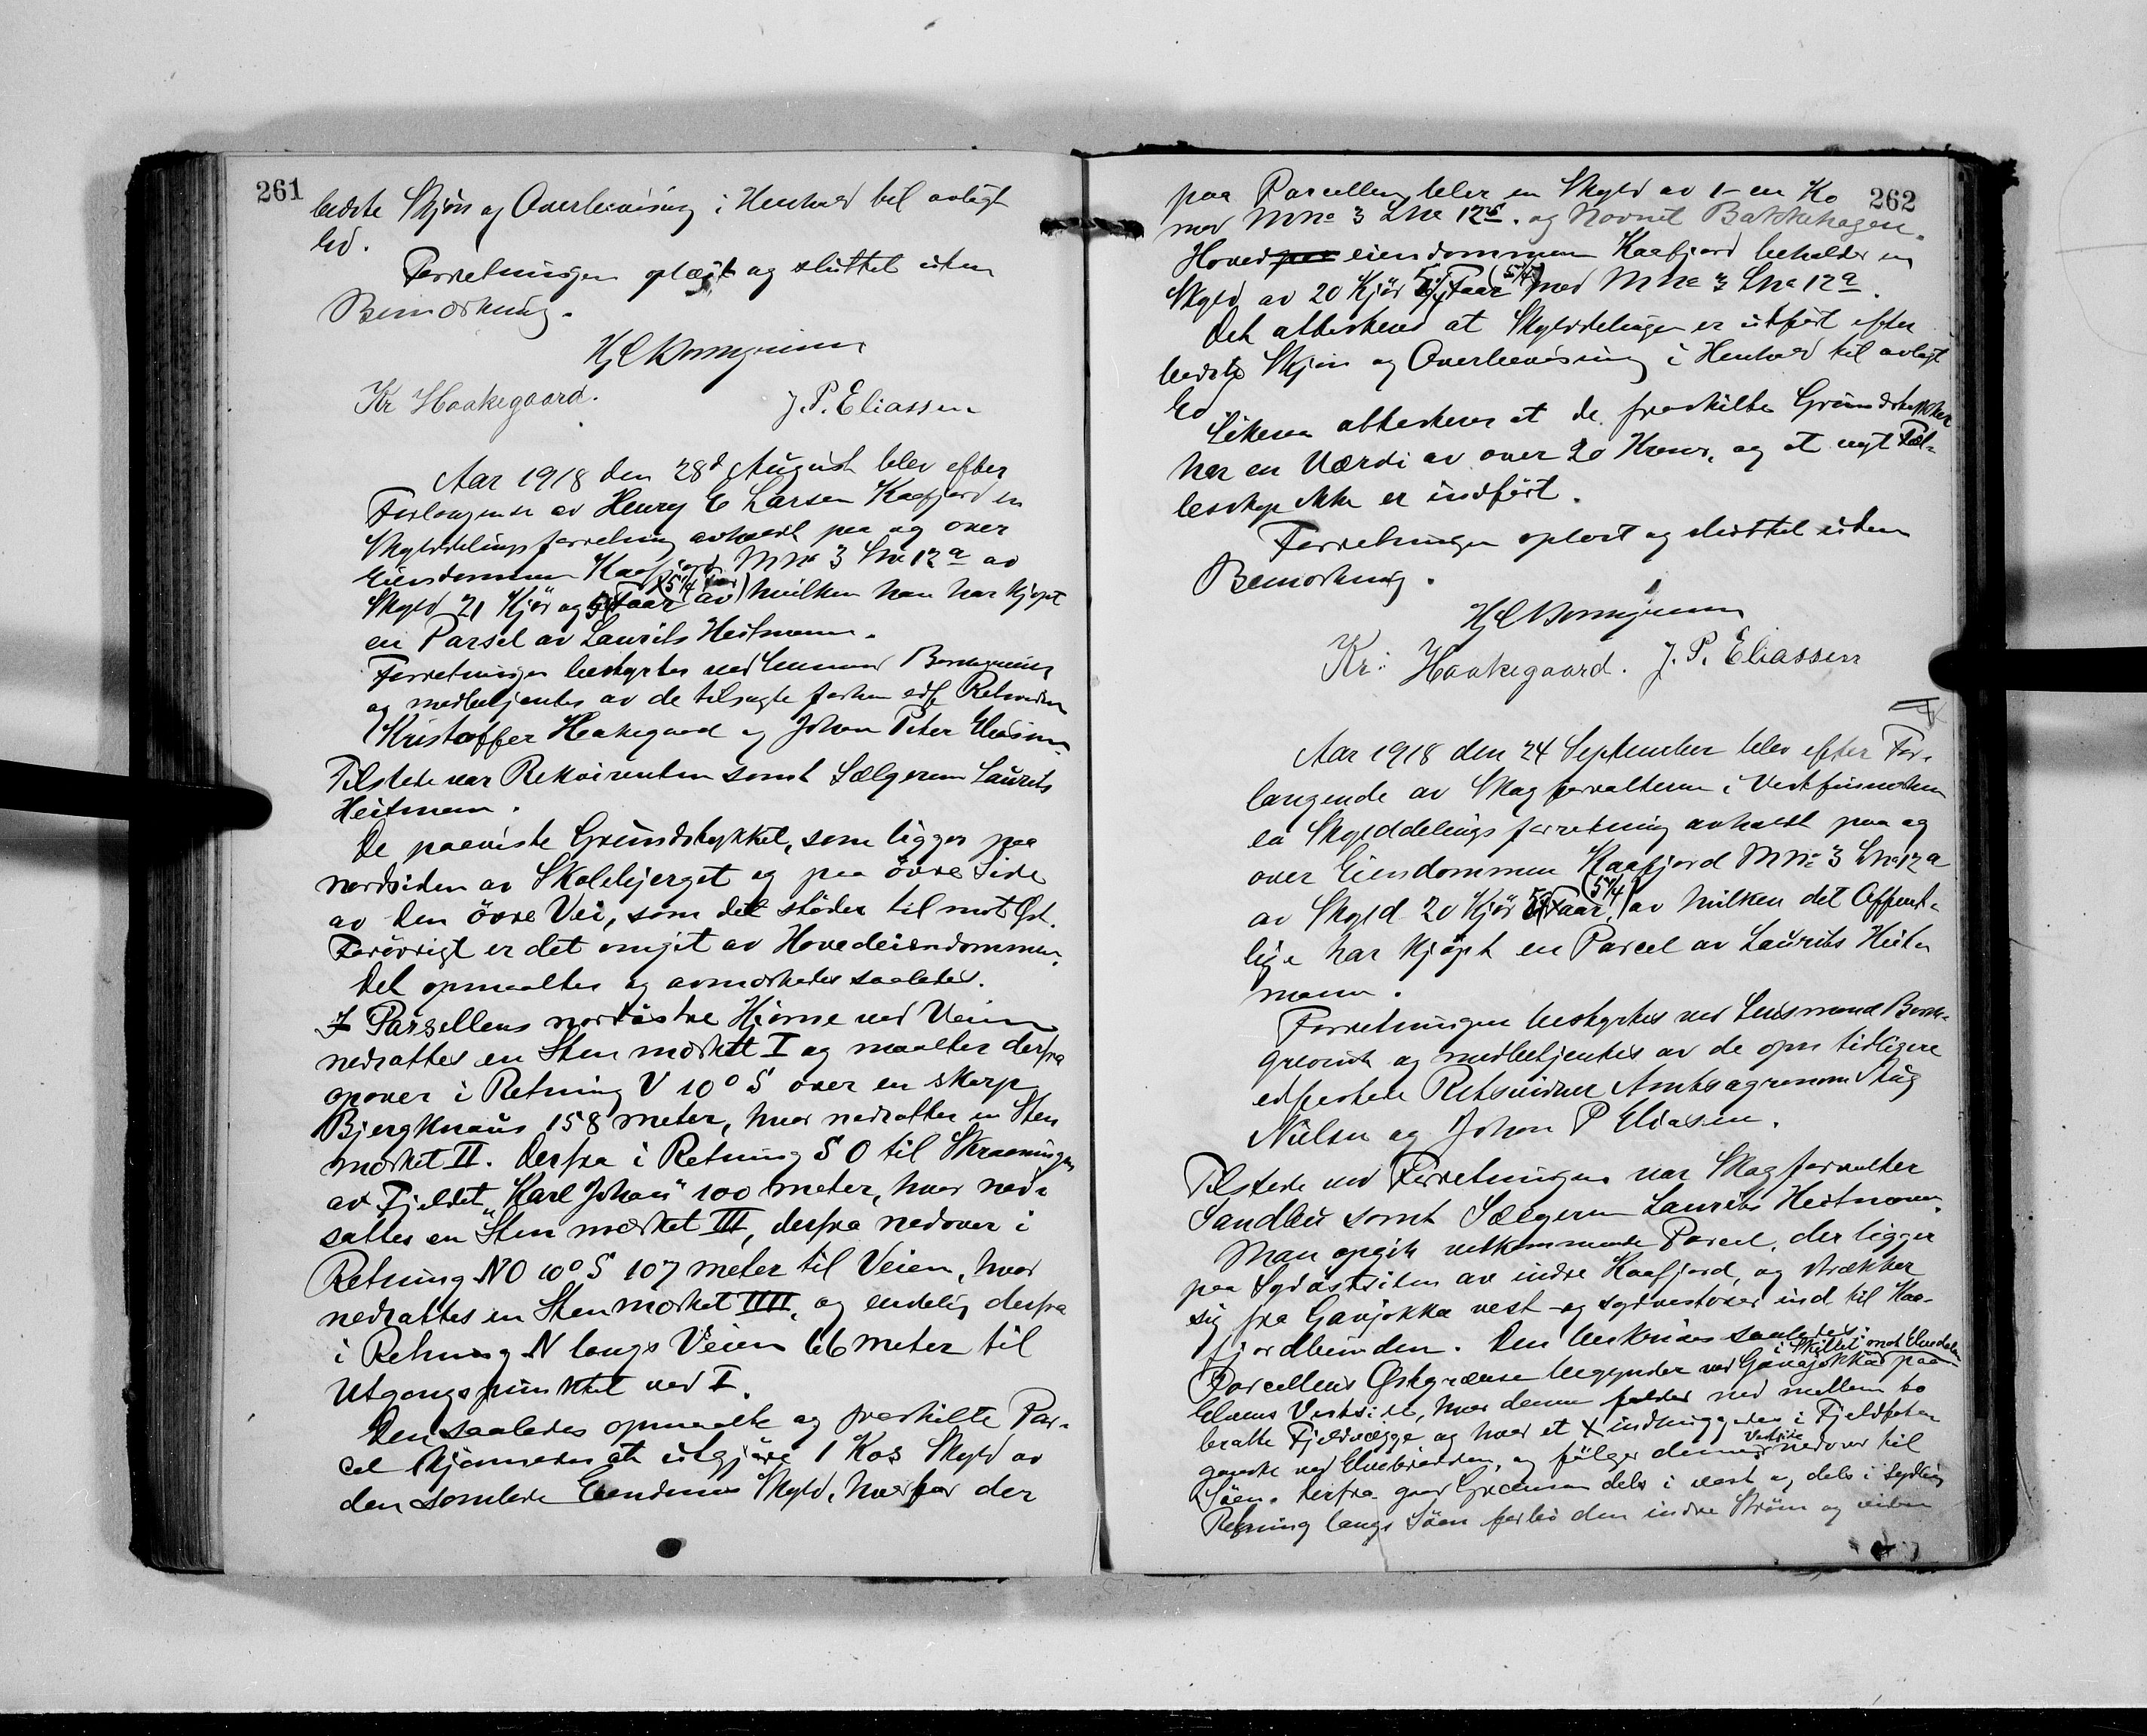 261
bedste Skjön og Overbevisning i Henhold til avlagt
Ed.
Forretningen oplæst og sluttet uten
Bemerkning.
Kr Haakegaard.
J. P. Eliassen
Aar 1918 den 28d August blev efter
Forlangende av Henry E Larsen Kaafjord en
Skylddelingsforretning avholdt paa og over
Eiendommen Kaafjord MNo 3 LNo 12a av
Skyld 21 Kjör og 5¼ Faar (5¼) av hvilken han har kjöpt
en Parsel av Laurits Heitmann.
Forretningen bestyrtes ved Lensmand
og medbetjentes av de tilsagte forhen edf. Retsvidner
Kristoffer Haakegaard og Johan Peter Eliassen.
Tilstede var Rekvirenten samt Sælgeren Laurits
Heitmann.
De paaviste Grundstykket, som ligger paa
nordsiden av Skolebjerget og paa övre Side
av den övre Vei, som det stöder til mot Öst.
Forövrigt er det omgit av Hovedeiendommen.
Det opmaaltes og avmerkedes saaledes.
I Parsellens nordöstre Hjörne ved Veien
nedsattes en Sten merket I og maaltes derfra
opover i Retning V 10° S over en skarp
Bjergknaus 158 meter, hvor nedsattes en Sten
merket II. Derfra i Retning S O til Skraaningen
av Fjeldet „Karl Johan" 100 meter, hvor ned-
sattes en Sten merket III, derfra nedover i
Retning NO 10° S 107 meter til Veien, hvor
nedsattes en Sten merket IIII, og endelig derfra
i Retning N langs Veien 66 meter til
Utgangspunktet ved I.
Den saaledes opmaalte og fraskilte Par-
cel skjönnedes at utgjöre 1 Kos Skyld av
den samlede Eiendoms Skyld, hvorfor der
262
paa Parcellen blev en Skyld av 1 - en Ko
med MNo 3 LNo 12 og Navnet Bakkehagen.
Hoved eiendommen Kaafjord beholder en
Skyld av 20 Kjör 5¼ Faar (5¼) med MNo 3 LNo 12a.
Det attesteres at Skylddelingen er utfört efter
bedste Skjön og Overbevisning i Henhold til avlagt
Ed
Likesaa attesteres at de fraskilte Grundstykker
har en Værdi av over 20 Kroner, og at nyt Fæl-
lesskap ikke er indfört.
Forretningen oplæst og sluttet uten
Bemerkning.
Kr: Haakegaard. J. P. Eliassen
Aar 1918 den 24 September blev efter For-
langende av Skogforvalteren i Vestfinmarken
en Skylddelingsforretning avholdt paa og
over Eiendommen Kaafjord MNo 3 LNo 12a
av Skyld 20 Kjör 5¼ Faar, (5¼) av hvilken det Offent-
lige har kjöpt en Parcel av Laurits Heit-
mann.
Forretningen bestyrtes ved Lensmand
og medbetjentes av de opn tidligere
edfestede Retsvidner Amtsagronom Stüg
Nielsen og Johan P Eliassen.
Tilstede ved Forretningen var Skogforvalter
Sandbu samt Sælgeren Laurits Heitmann.
Man opgik vedkommende Parcel, der ligger
paa Sydöstsiden av indre Kaafjord, og strækker
sig fra Gavjokka vest og sydvestover ind til Kaa-
fjordbunden. Den beskrives saaledes:
Parcellens Östgrænse begynder ved Gavajokka i Skillet mot Elvedalen paa
Elvens Vestside, hvor denne falder ned mellem to
bratte Fjeldvægge og hvor et X indhugges i Fjeldfoten
ganske ved Elvebredden, og fölger dennes Vestside nedover til
Söen. Derfra gaar Grænsen dels i vest og dels i sydlig
Retning langs Söen forbi den indre Ström og viden